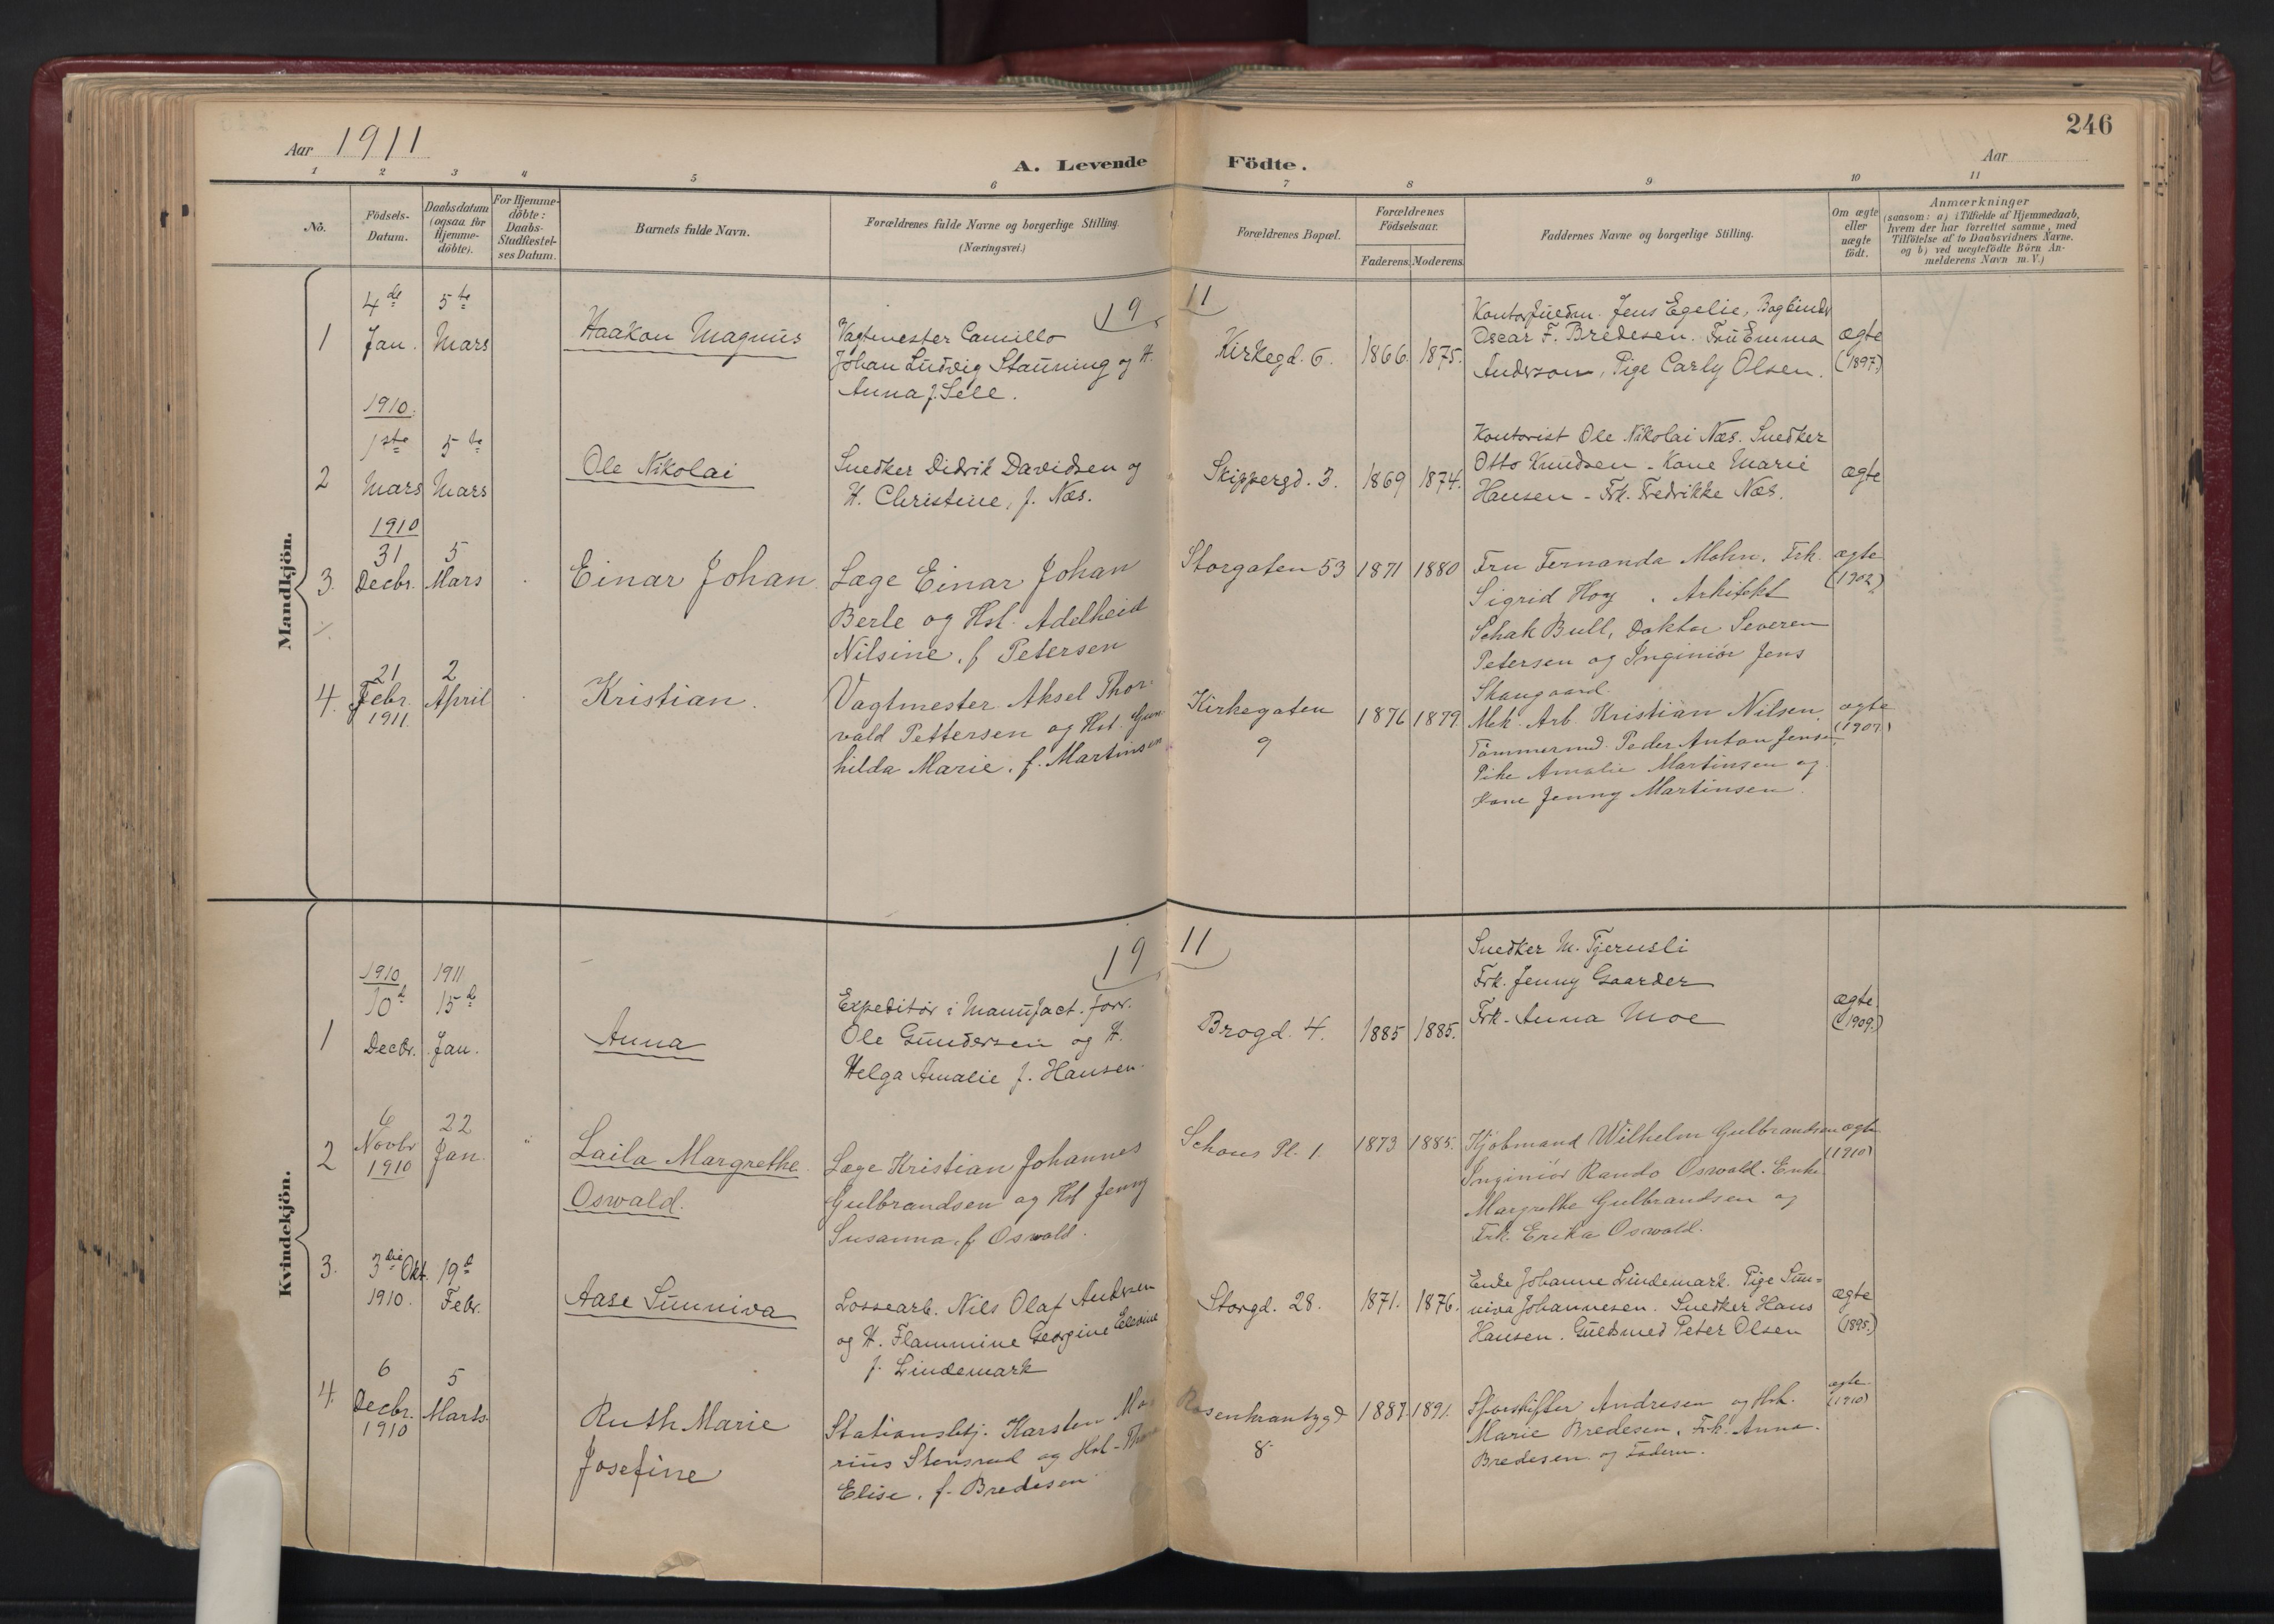 246
Aar 1911
A. Levende Födte.
Aar
1 2 3 4 5 6 7 8 9 10 11
No.
Födsels-Datum.
Daabsdatum (ogsaa for Hjemme-döbte).
For Hjemme-döbte: Daabs-Stadfæstel-ses Datum.
Barnets fulde Navn.
Forældrenes fulde Navne og borgerlige Stilling.
(Næringsvei.)
Forældrenes Bopæl.
Forældrenes Födselsaar.
Faderens. Moderens.
Faddernes Navne og borgerlige Stilling.
Om ægte eller uægte födt.
Anmærkninger
(saasom: a) i Tilfælde af Hjemmedaab, hvem der har forrettet samme, med Tilföielse af to Daabsvidners Navne. og b) ved uægtefödte Börn Anmelderens Navn m. V.)
Mandkjön.
19 11
1
4de Jan.
5te Mars
Haakon Magnus
Vagtmester Camillo
Johan Ludvig Stauning og H.
Anna f. Sele.
Kirkegd. 6.
1866. 1875.
Kontorfuldm. Jens Egelie, Bogbinder
Oscar F. Bredesen. Fru Emma
Anderson, Pige Carly Olsen.
ægte
(1897.)
2
1910.
1ste Mars
5te Mars
Ole Nikolai
Snedker Didrik Davidsen og
H. Christine, f. Næs.
Skippergd. 3.
1869 1874.
Kontorist Ole Nikolai Næs. Snedker
Otto Knudsen - Kone Marie
Hansen - Frk. Fredrikke Næs.
ægte
3.
1910
31 Decbr.
5 Mars
Einar Johan
Læge Einar Johan
Berle og Hst. Adelheid
Nilsine, f. Petersen
Storgaten 53
1871 1880
Fru Fernanda Mohn. Frk.
Sigrid Hoy. Arkitekt
Schak Bull, Doktor Severen
Petersen og Inginiör Jens
Skaugaard.
ægte
(1902)
4.
21 Febr. 1911.
2 April
Kristian.
Vagtmester Aksel Thor-
vald Pettersen og Hst. Gun
hilda Marie, f. Martinsen
Kirkegaten
9
1876 1879
Mek. Arb. Kristian Nilsen.
Tömmermd. Peder Anton Jensen,
Pike Amalie Martinsen og
Kone Jenny Martinsen.
ægte
Kvindekjön.
19 11
1
1910
10d Decbr.
1911
15d Jan.
Anna
Expeditör i Manufact. forr.
Ole Gundersen og H.
Helga Amalie f. Hansen.
Brogd. 4.
1885 1885.
Snedker M. Tjernsli
Frk. Jenny Gaarder
Frk. Anna Moe
ægte.
(1909.)
2
6 Novbr 1910
22 Jan.
Laila Margrethe
Oswald.
Læge Kristian Johannes
Gulbrandsen og Hst Jenny
Susanna, f. Oswald.
Schous Pl. 1.
1873 1885.
Kjöbmand Wilhelm Gulbrandsen
Inginiör Rando Oswald. Enke
Margrethe Gulbrandsen og
Frk. Erika Oswald.
ægte
(1910)
3.
3die Okt. 1910.
19d Febr.
Aase Sunniva
Lossearb. Nils Olaf Andersen
og H. Flammine Georgine Elevine
f. Lindemark
Storgd. 28.
1871. 1876.
Enke Johanne Lindemark. Pige Sun-
niva Johannesen. Snedker Hans
Hansen. Guldsmed Peter Olsen
ægte
(1895.)
4.
6 Decbr. 1910
5 Marts
Ruth Marie
Josefine
Stationsbtj. Karsten Ma
rius Stensrud og Hst.
Elise, f. Bredesen
Rosenkrantzgd
8
1887. 1891.
Sporskifter Andresen og Hst.
Marie Bredesen, Frk. Anna
Bredesen og Faderen.
ægte.
(1910)